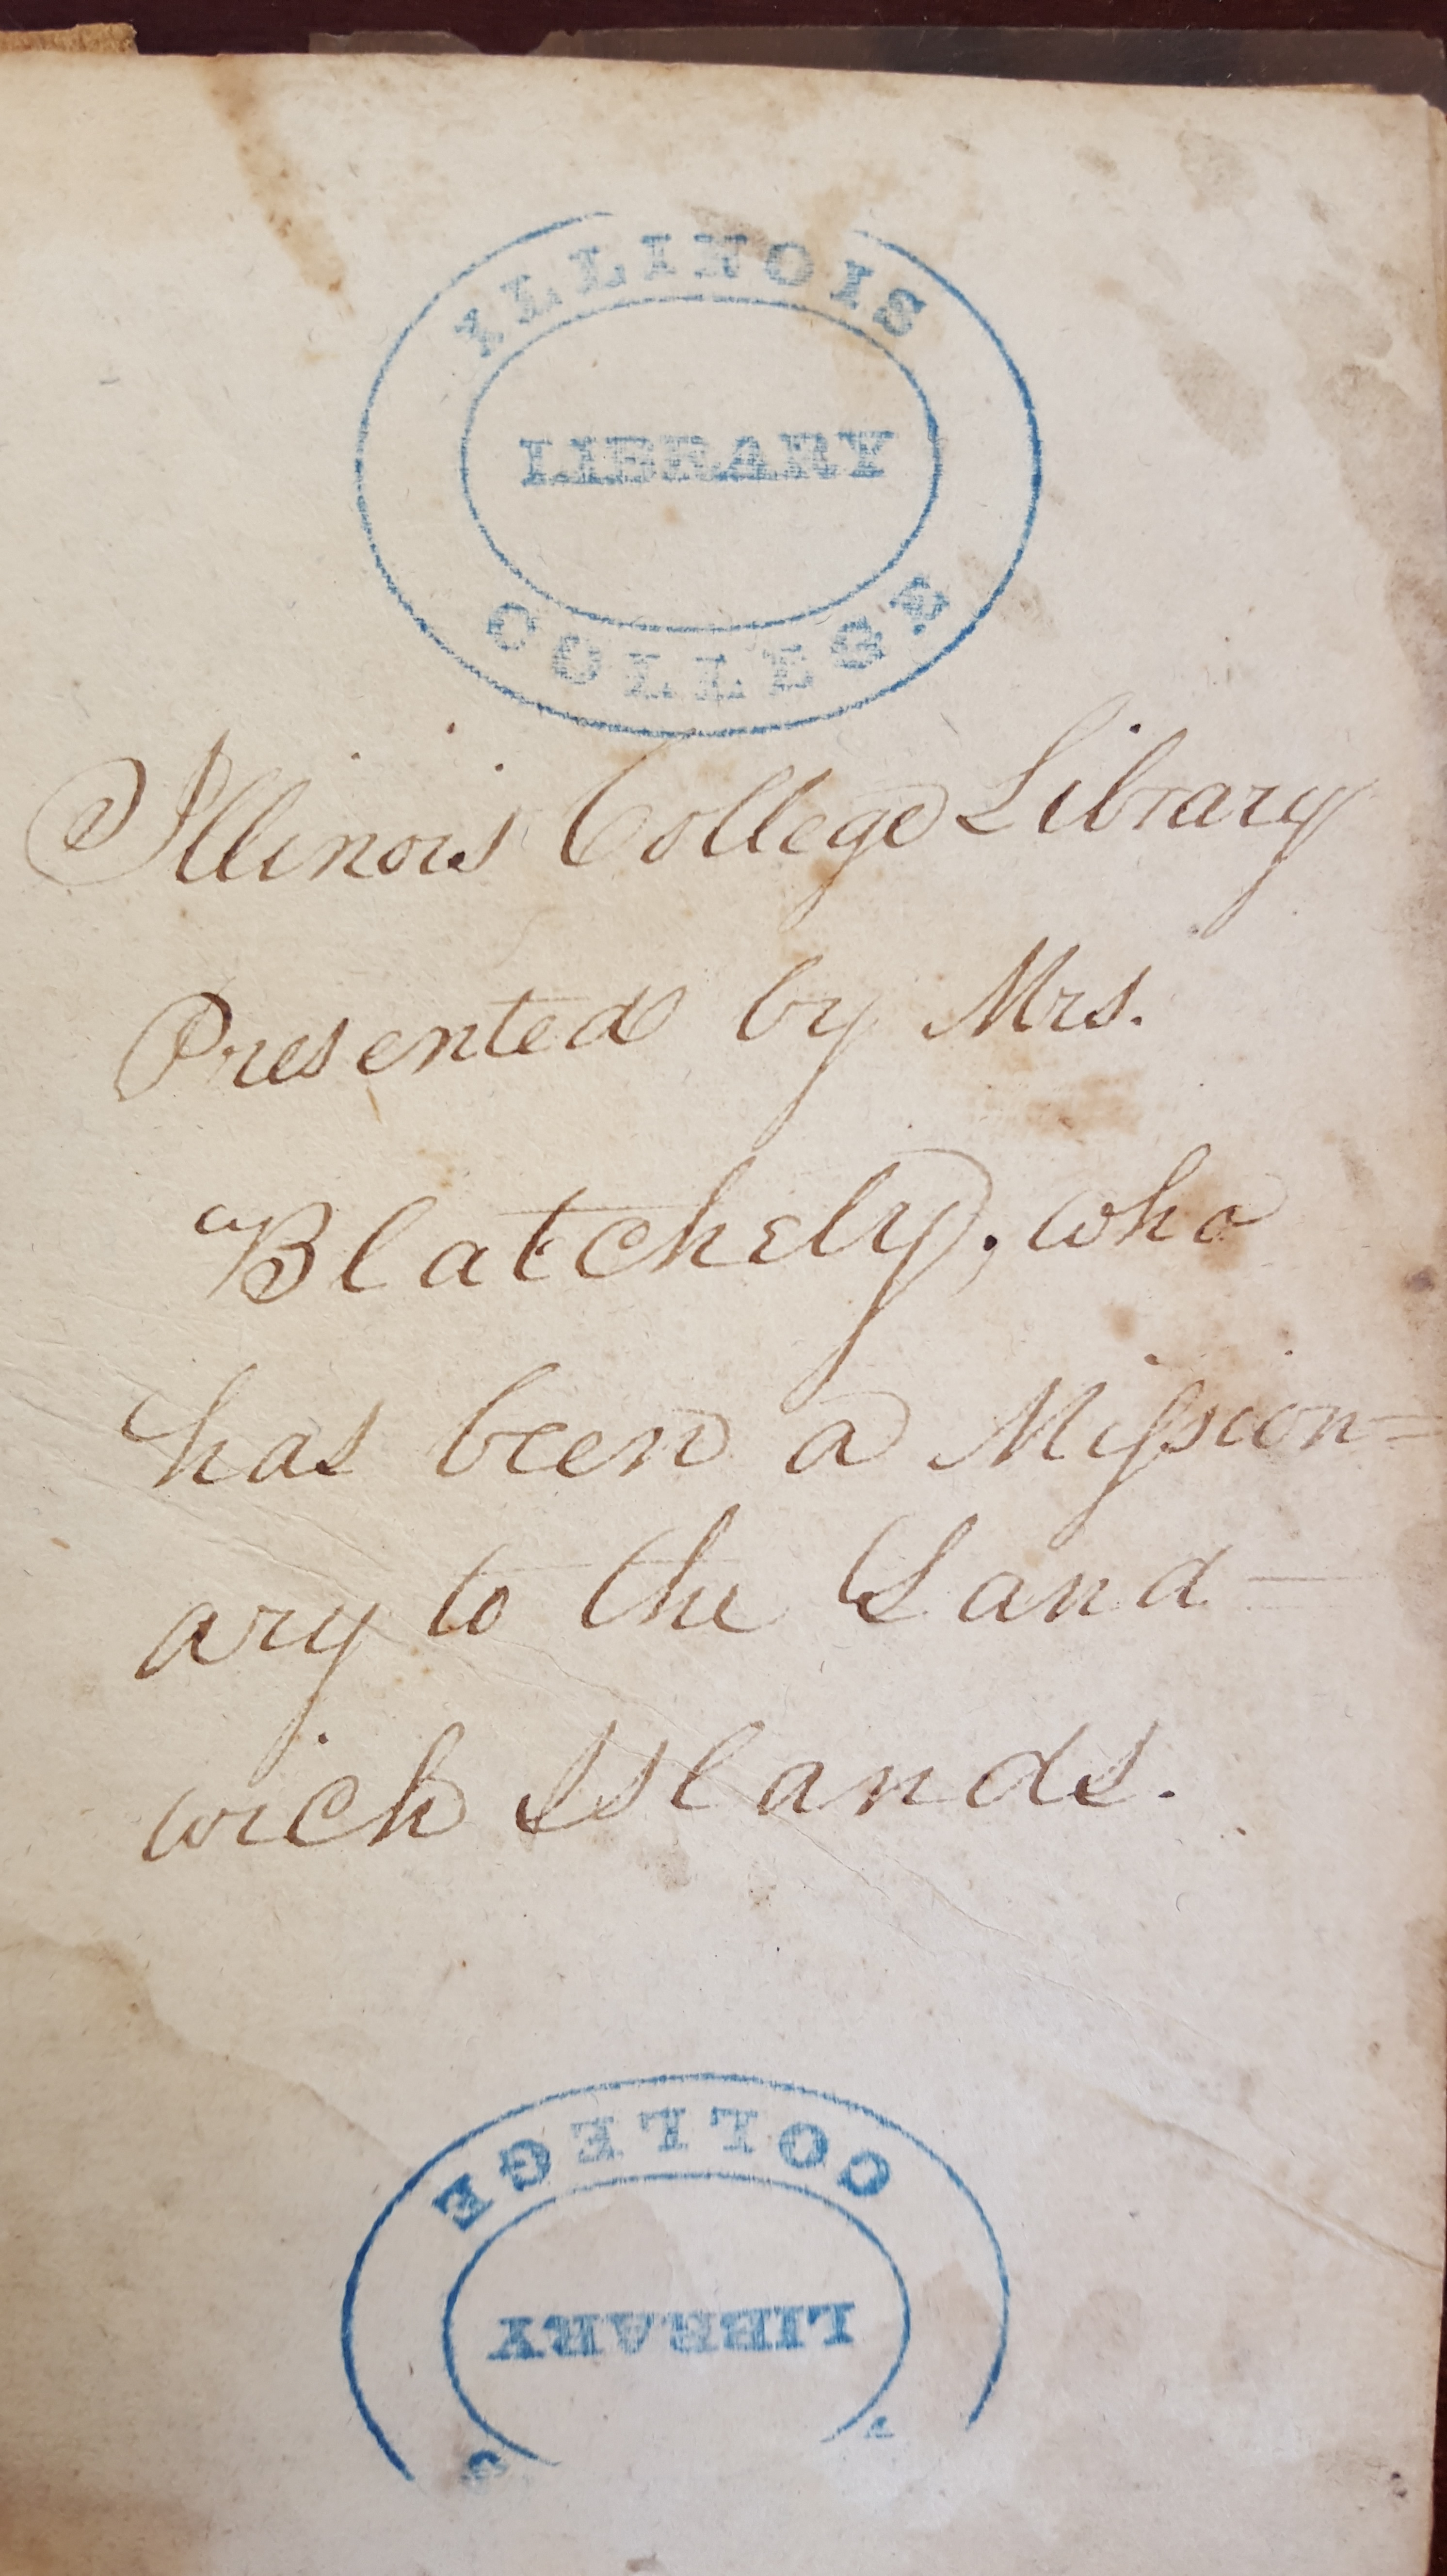 ILLINOIS
LIBRARY
COLLEGE
Illinois College Library
Presented by Mrs.
Blatchely, who
has been a Mission=
ary to the Sand-
wich Islands.
COLLEGE
LIBRARY